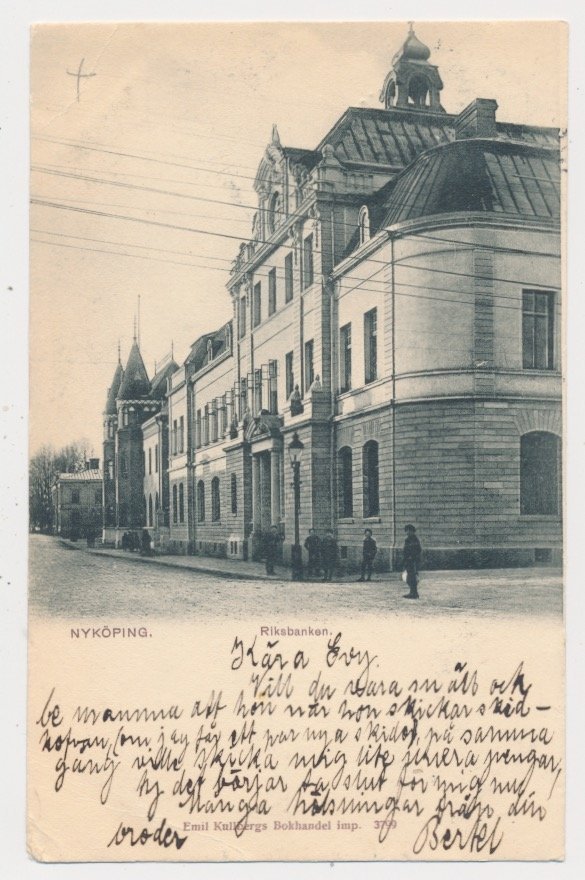 NYKÖPING. Riksbanken.
Kära Evy.
Vill du vara snäll och
be mamma att hon när hon skickar sked-
(om jag får ett par nya skidor, på samma
gång ville skicka mig lite pengar,
ty det börjar ta slut för mig nu.
Många hälsningar från din
broder Bertel
Emil Kullbergs Bokhandel imp. 3799